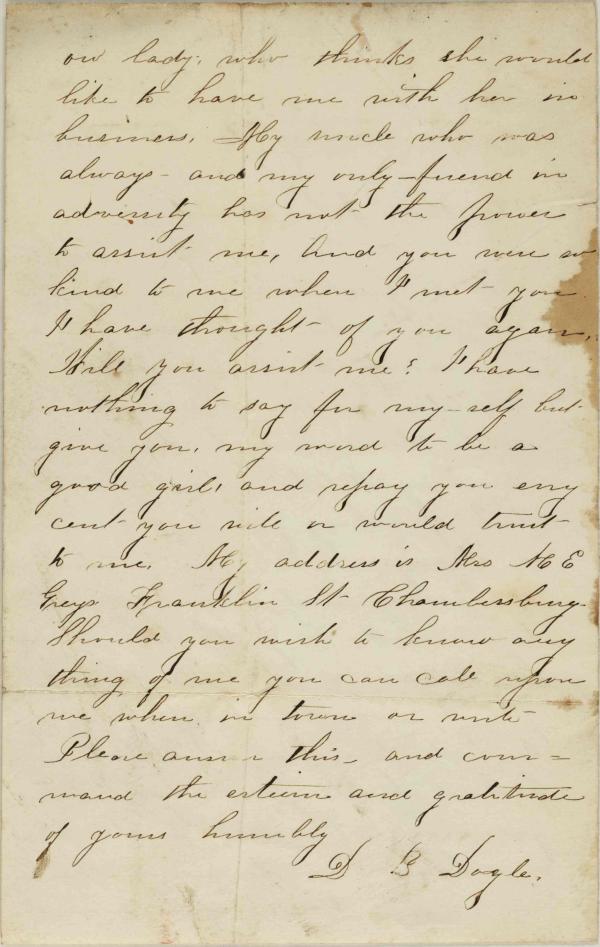 ow lady, who thinks she would
like to have me with her in
business. My uncle who was
always - and my only - friend in
adversity has not the power
to assist me, And you were so
kind to me when I met you
I have thought of you again,
Will you assist me? I have
nothing to say for my-self but
give you, my word to be a
good girl, and repay you evry
cent you will or would trust
to me. My address is Mrs M E
Greys Franklin St Chambersburg.
Should you wish to know any
thing of me you can call upon
me when in town or write
Please answer this - and com=
mand the esteem and gratitude
of yours humbly
D B Doyle.